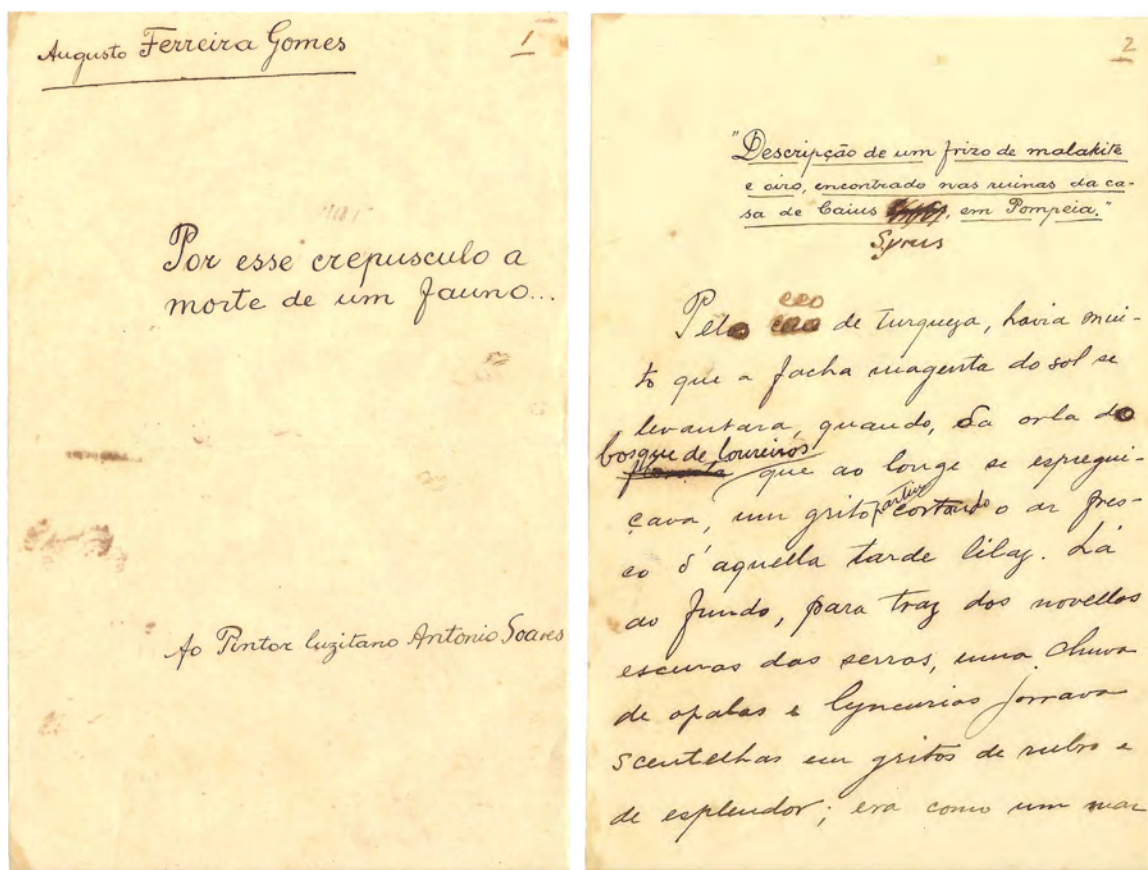 Augusto Ferreira Gomes
1
Por esse crepusculo a
morte de um fauno...
Ao Pintor luzitano Antonio Soares
2
"Descripção de um frizo de malakite
e oiro, encontrado nas ruinas da ca-
sa de Caius , em Pompeia."
Syrus
ceo
Pelo de turqueza, havia mui-
to que a facha magenta do sol se
levantara, quando, da orla do
bosque de loureiros
floresta que ao longe se espregui-
partiu
çava, um grito cortando o ar fres-
co d'aquella tarde lilaz. Lá
ao fundo, para traz dos novellos
escuros das serras, uma chuva
de opalas e lyncurios jorrava
scentelhas em gritos de rubro e
de esplendor; era como um mar